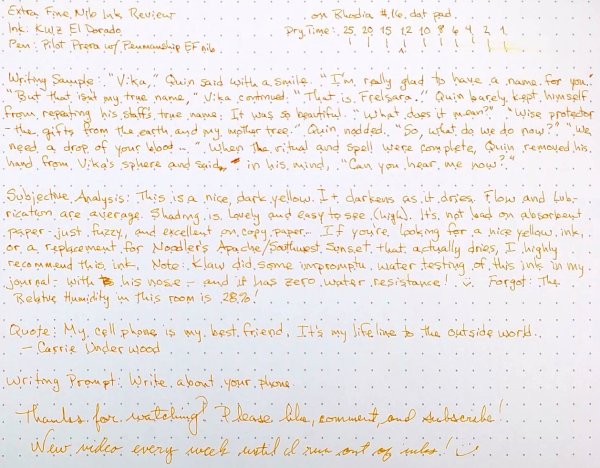 Extra Fine Nib Ink Review on Rhodia #16 dot pad
Ink: KWZ El Dorado Dry Time: 25 20 15 12 10 8 6 4 2 1
Pen: Pilot Prera w/ Penmanship EF nib
Writing Sample: "Vika," Quin said with a smile. "I'm really glad to have a name for you."
"But that isn't my true name," Vika continued. "That is Frelsara." Quin barely kept himself
from repeating his staff's true name. It was so beautiful. "What does it mean?" "Wise protector
- the gifts from the earth and my mother tree." Quin nodded. "So, what do we do now?" "We
need a drop of your blood..." When the ritual and spell were complete, Quin removed his
hand from Vika's sphere and said, in his mind, "Can you hear me now?"
Subjective Analysis: This is a nice, dark yellow. It darkens as it dries. Flow and lub-
rication are average. Shading is lovely and easy to see (high). It's not bad on absorbent
paper - just fuzzy, and excellent on copy paper. If you're looking for a nice yellow ink,
or a replacement for Noodler's Apache/Southwest Sunset that actually dries, I highly
recommend this ink. Note: Klaw did some impromptu water testing of this ink in my
journal - with his nose - and it has zero water resistance! Forgot: The
Relative Humidity in this room is 28%!
Quote: My cell phone is my best friend. It's my lifeline to the outside world.
- Carrie Underwood
Writing Prompt: Write about your phone.
Thanks for watching! Please like, comment, and subscribe!
New video every week until I run out of inks!